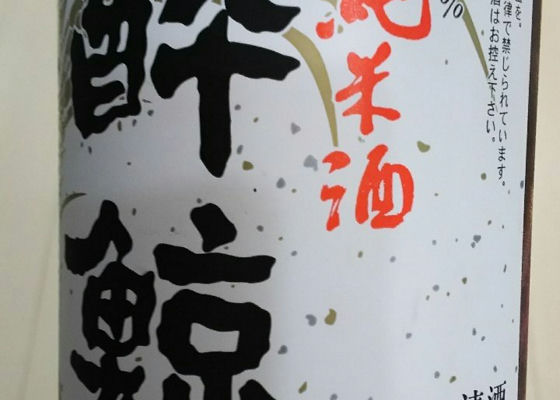 酔鯨
純米酒
%
律で禁じられています。
酒はお控え下さい。
酒